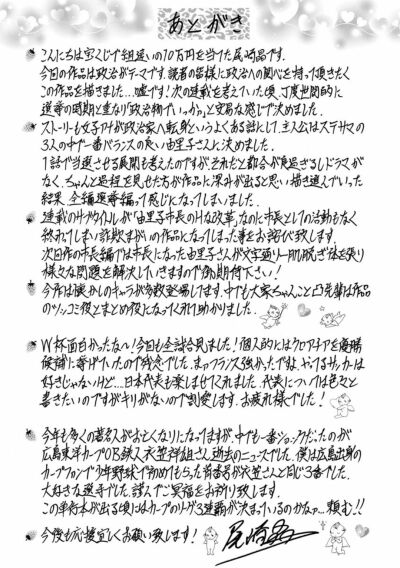 あとがき
こんにちは宝くじで組違いの10万円を当てた尾崎晶です。
今回の作品は政治がテーマです。読者の皆様に政治への関心を持って頂きたく
この作品を描きました…嘘です！次の連載を考えていた頃、丁度世間的に
選挙の時期と重なり「政治物でいっか。」と安易な感じで決めました。
ストーリーも女子アナが政治家へ転身というよくある話にして、主人公はステサマの
3人の中で一番バランスの良い由里子さんに決めました。
1話で当選させる展開も考えたのですが、それだと都合が良過ぎるしドラマが
なく、ちゃんと過程を見せた方が作品に深みが出ると思い描き進んでいった
結果、全編選挙編って感じになってしまいました。
連載のサブタイトルが「由里子市長のHな改革」なのに市長としての活動もなく
終わってしまい詐欺まがいの作品になってしまった事をお詫び致します。
次回作の市長編では市長になった由里子さんが文字通り一肌脱ぎ法を張り
様々な問題を解決していきますので御期待下さい！
今作は懐かしのキャラが多数登場してます。中でも大家ちゃんこと凸先輩は作品
のツッコミ役とまとめ役になってくれて助かりました。
W杯面白かったな〜！今回も全試合見ました！個人的にはクロアチアを優勝
候補に挙げていたので残念でした。まぁフランス強かったですね。やってるサッカーは
好きじゃないけど…日本代表も楽しませてくれました。代表については色々と
書きたいのですがキリがないので割愛します。お疲れ様でした！
今年も多くの著名人がお亡くなりになってますが、中でも一番ショックだったのが
広島東洋カープOB鉄人衣笠祥雄さん逝去のニュースでした。僕は広島出身の
カープファンで少年野球で初めてもらった背番号が衣笠さんと同じ3番でした。
大好きな選手でした。謹んでご冥福をお祈り致します。
この単行本が出る頃にはカープのリーグ3連覇が決まっているのかなァ…頼む!!
今後も応援宜しくお願い致します！
尾崎晶